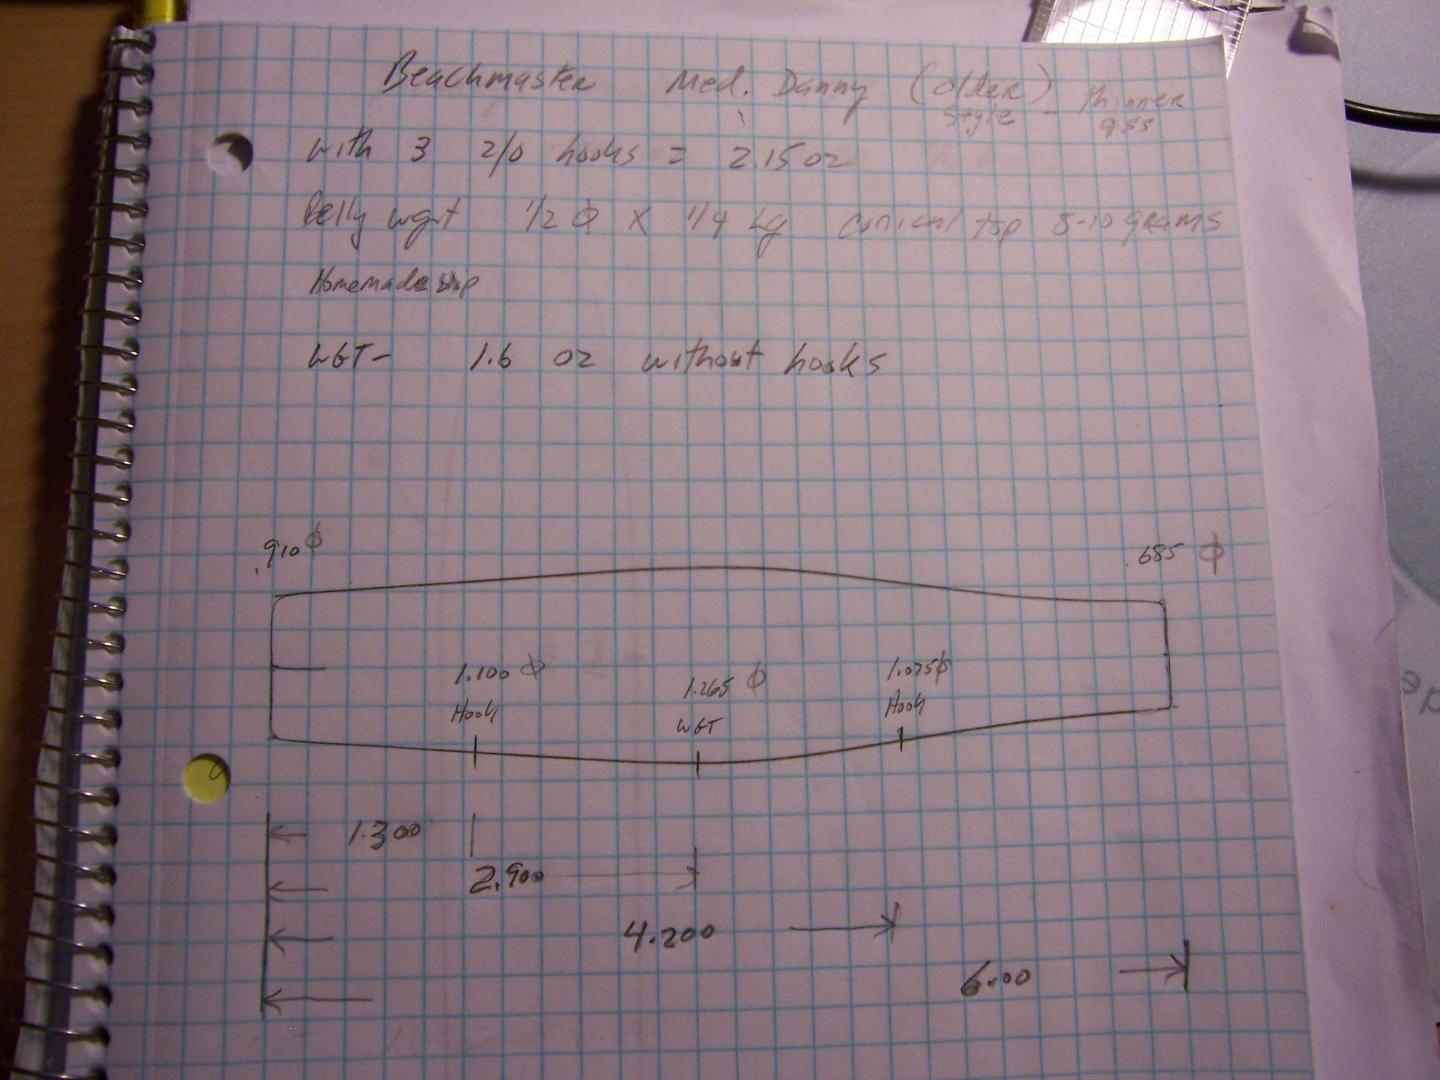 Beachmaster Med. Danny (older) - thinner
style ass
with 3 2/0 hooks = 2.15 oz
Belly wgt 1/2 Φ X 1/4 Lg conical top 8-10 grams
Homemade
WGT- 1.6 oz without hooks
.910 Φ .685 Φ
1.100 Φ 1.265 Φ 1.075 Φ
Hook WGT Hook
1.300
2.900
4.200
6.00